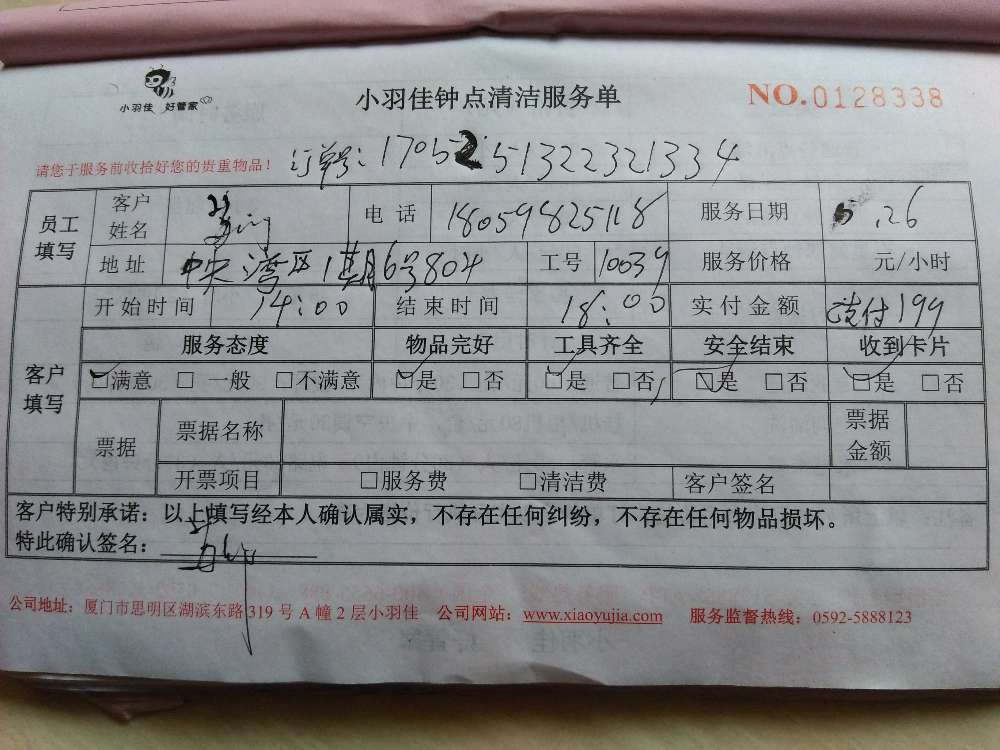 小羽佳 好管家
小羽佳钟点清洁服务单
NO.0128338
请您于服务前收拾好您的贵重物品！ 订单号：1705251322321334
员工填写 客户姓名 电话 18059825118 服务日期 .26
地址 中央湾区1期6号804 工号 10039 服务价格 元/小时
客户填写 开始时间 14:00 结束时间 18:00 实付金额 支付199
服务态度 物品完好 工具齐全 安全结束 收到卡片
☑满意 □一般 □不满意 ☑是 □否 ☑是 □否 ☑是 □否 ☑是 □否
票据 票据名称 票据金额
开票项目 □服务费 □清洁费 客户签名
客户特别承诺：以上填写经本人确认属实，不存在任何纠纷，不存在任何物品损坏。
特此确认签名：
公司地址：厦门市思明区湖滨东路319号A幢2层小羽佳 公司网站：www.xiaoyujia.com 服务监督热线：0592-5888123